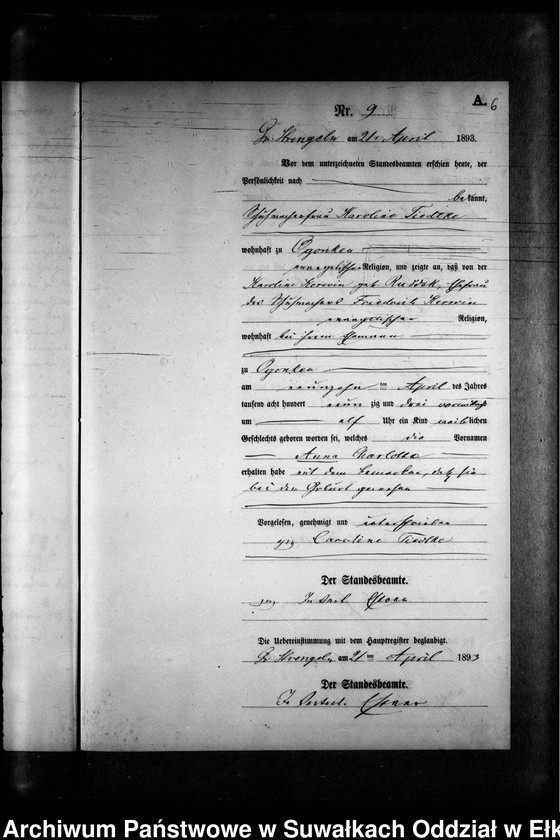 A. 6
Nr. 9
Gr. Strengeln am 21. April 1893.
Vor dem unterzeichneten Standesbeamten erschien heute, der
Persönlichkeit nach
bekannt,
Schuhmacherfrau Karoline Tiedtke
wohnhaft zu Ogonken
evangelischer Religion, und zeigte an, daß von der
Karoline Kerwin geb. Ruddek, Ehefrau
des Schuhmachers Friedrich Kerwin
evangelischer Religion,
wohnhaft bei ihrem Ehemann
zu Ogonken
am neunzehn ten April des Jahres
tausend acht hundert neun zig und drei vormittags
um elf Uhr ein Kind weiblichen
Geschlechts geboren worden sei, welches die Vornamen
Anna Karlotte
erhalten habe mit dem Bemerken, daß sie
bei der Geburt gewesen
Vorgelesen, genehmigt und unterschrieben
gez. Caroline Tiedtke
Der Standesbeamte.
gez. In Vert.
Die Uebereinstimmung mit dem Hauptregister beglaubigt.
Gr. Strengeln am 21 ten April 1893
Der Standesbeamte.
In Vertret.
Archiwum Państwowe w Suwałkach Oddział w Ełk